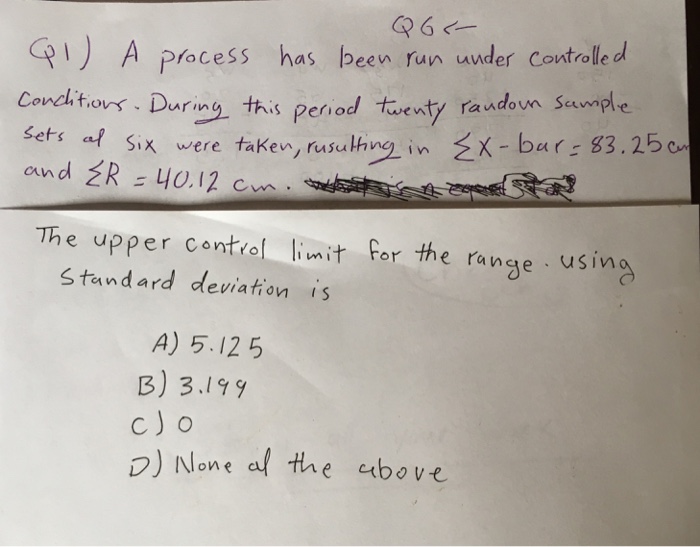 Q6 ←
Q1) A process has been run under controlled
Conditions. During this period twenty random sample
Sets of six were taken, rusulting in ΣX-bar = 83.25 cm
and ΣR = 40.12 cm.
The upper control limit for the range. using
Standard deviation is
A) 5.125
B) 3.199
C) 0
D) None of the above